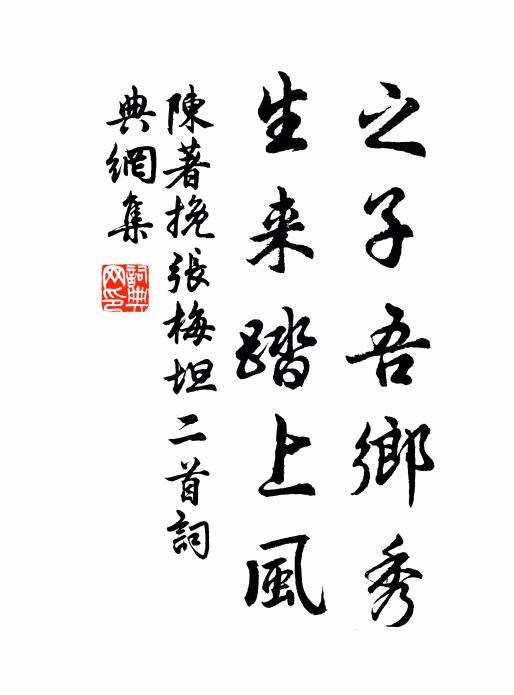 之子吾鄉秀
生来踏上風
陳著挽張梅坦二首詞
典網集
詞典網印